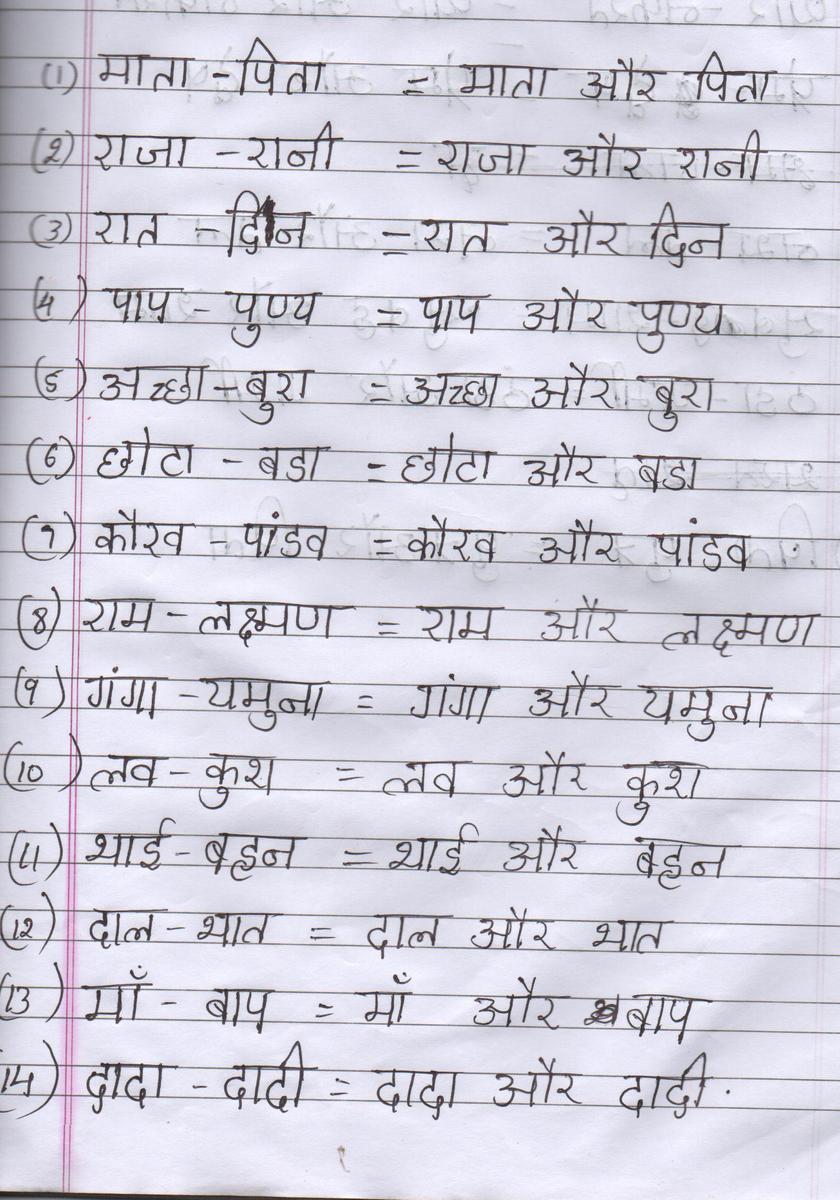 (1) माता - पिता = माता और पिता
(2) राजा - रानी = राजा और रानी
(3) रात - दिन = रात और दिन
(4) पाप - पुण्य = पाप और पुण्य
(5) अच्छा - बुरा = अच्छा और बुरा
(6) छोटा - बडा = छोटा और बडा
(7) कौरव - पांडव = कौरव और पांडव
(8) राम - लक्ष्मण = राम और लक्ष्मण
(9) गंगा - यमुना = गंगा और यमुना
(10) लव - कुश = लव और कुश
(11) भाई - बहन = भाई और बहन
(12) दाल - भात = दाल और भात
(13) माँ - बाप = माँ और बाप
(14) दादा - दादी = दादा और दादी.